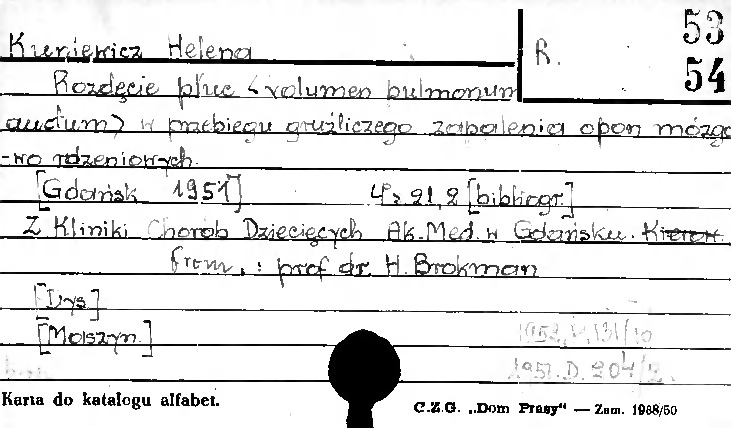 Kuniewicz Helena
R. 53
54
Rozdęcie płuc <volumen pulmonum
auctum> w przebiegu gruźliczego zapalenia opon mózgo
-wo rdzeniowych.
[Gdańsk 1951] 4°: 21, 2 [bibliogr.]
Z Kliniki Chorób Dziecięcych Ak. Med. w Gdańsku. Kierow.
prom.: prof dr. H. Brokman
[Dys.]
[Maszyn.]
131/10
1951. D. 204/2.
Karta do katalogu alfabet.
C.Z.G. „Dom Prasy“ — Zam. 1968/50